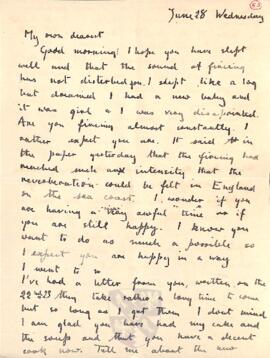 63
June 28 Wednesday
My own dearest
Good morning! I hope you have slept
well and that the sound of firing
has not disturbed you. I slept like a log
but dreamed I had a new baby and
it was a girl & I was very disappointed.
Are you firing almost constantly. I
rather expect you are. It said in
the paper yesterday that the firing had
reached such an intensity that the
reverberation could be felt in England
on the sea coast. I wonder if you
are having a very awful time or if
you are still happy. I know you
want to do as much as possible so
I expect you are happy in a way
I went to
I've had a letter from you, written on the
22nd they take rather a long time to come
but so long as I get them I dont mind
I am glad you have had my cake and
the soup and that you have a decent
cook now. Tell me about the new